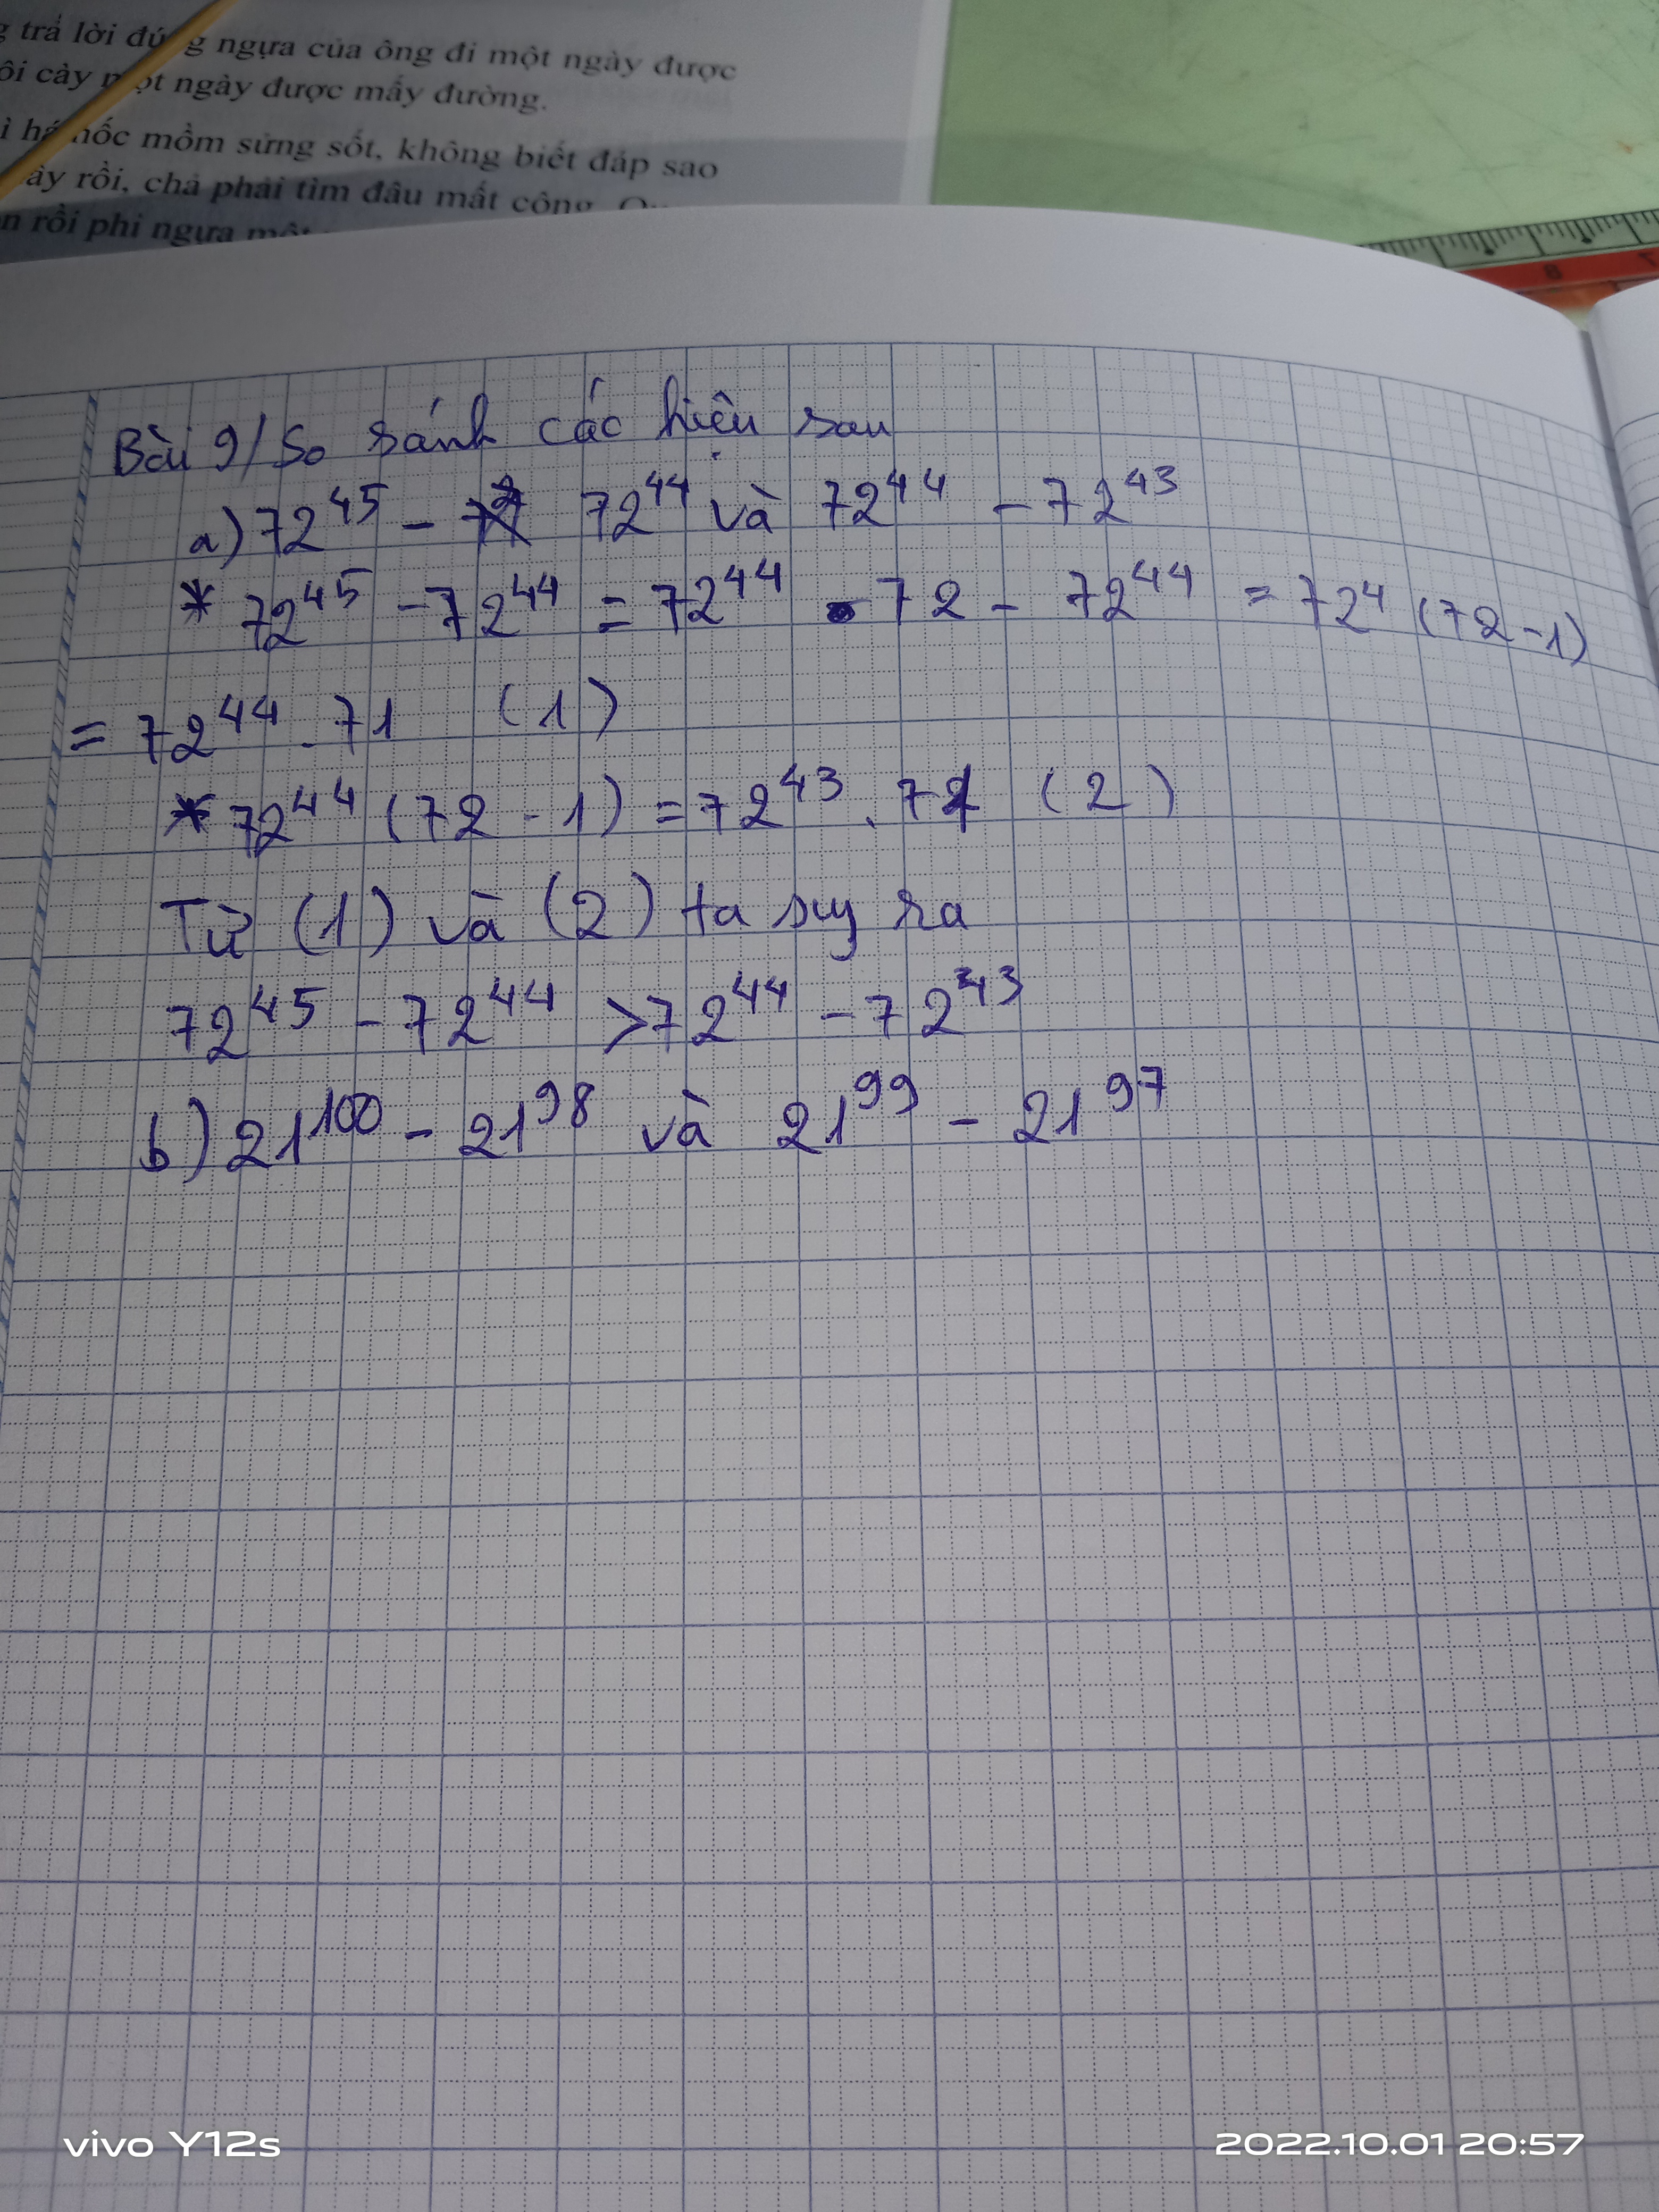 trả lời đúng ngựa của ông đi một ngày được
cày một ngày được mấy đường.
há hốc mồm sửng sốt, không biết đáp sao
rồi, chả phải tìm đâu mất công.
rồi phi ngựa một
Bài 9/ So sánh các hiệu sau
a) 72^45 - 72^44 và 72^44 - 72^43
* 72^45 - 72^44 = 72^44 . 72 - 72^44 = 72^4 (72 - 1)
= 72^44 . 71 (1)
* 72^44 (72 - 1) = 72^43 . 71 (2)
Từ (1) và (2) ta suy ra
72^45 - 72^44 > 72^44 - 72^43
b) 21^100 - 21^98 và 21^99 - 21^97
vivo Y12s
2022.10.01 20:57